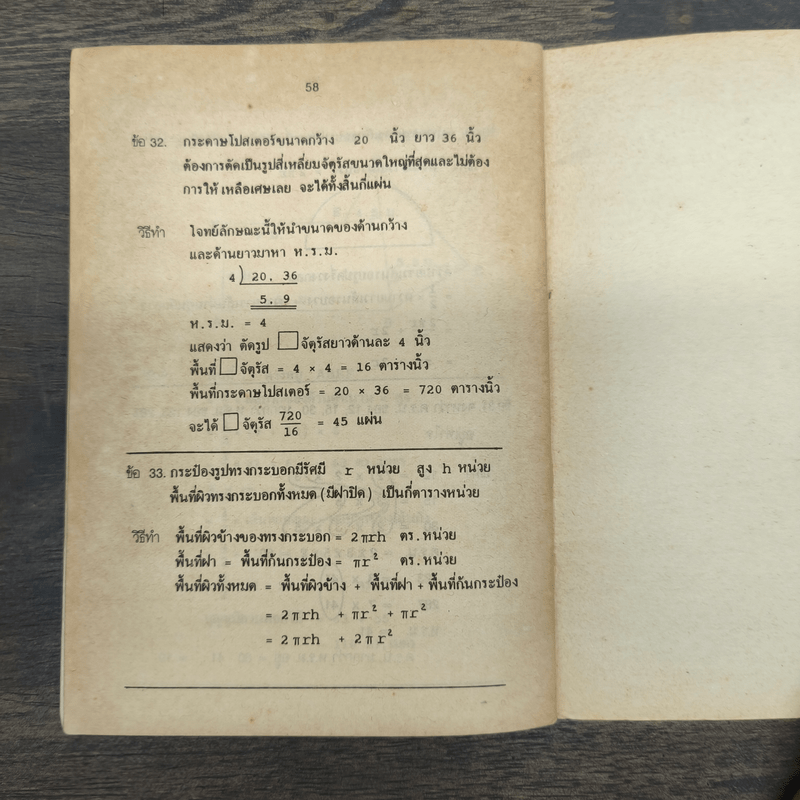 58
ข้อ 32. กระดาษโปสเตอร์ขนาดกว้าง 20 นิ้ว ยาว 36 นิ้ว
ต้องการตัดเป็นรูปสี่เหลี่ยมจัตุรัสขนาดใหญ่ที่สุดและไม่ต้อง
การให้ เหลือเศษเลย จะได้ทั้งสิ้นกี่แผ่น
วิธีทำ โจทย์ลักษณะนี้ให้นำขนาดของด้านกว้าง
และด้านยาวมาหา ห.ร.ม.
4) 20, 36
5, 9
ห.ร.ม. = 4
แสดงว่า ตัดรูป □ จัตุรัสยาวด้านละ 4 นิ้ว
พื้นที่ □ จัตุรัส = 4 × 4 = 16 ตารางนิ้ว
พื้นที่กระดาษโปสเตอร์ = 20 × 36 = 720 ตารางนิ้ว
จะได้ □ จัตุรัส 720/16 = 45 แผ่น
ข้อ 33. กระป๋องรูปทรงกระบอกมีรัศมี r หน่วย สูง h หน่วย
พื้นที่ผิวทรงกระบอกทั้งหมด (มีฝาปิด) เป็นกี่ตารางหน่วย
วิธีทำ พื้นที่ผิวข้างของทรงกระบอก = 2πrh ตร.หน่วย
พื้นที่ฝา = พื้นที่ก้นกระป๋อง = πr² ตร.หน่วย
พื้นที่ผิวทั้งหมด = พื้นที่ผิวข้าง + พื้นที่ฝา + พื้นที่ก้นกระป๋อง
= 2πrh + πr² + πr²
= 2πrh + 2πr²